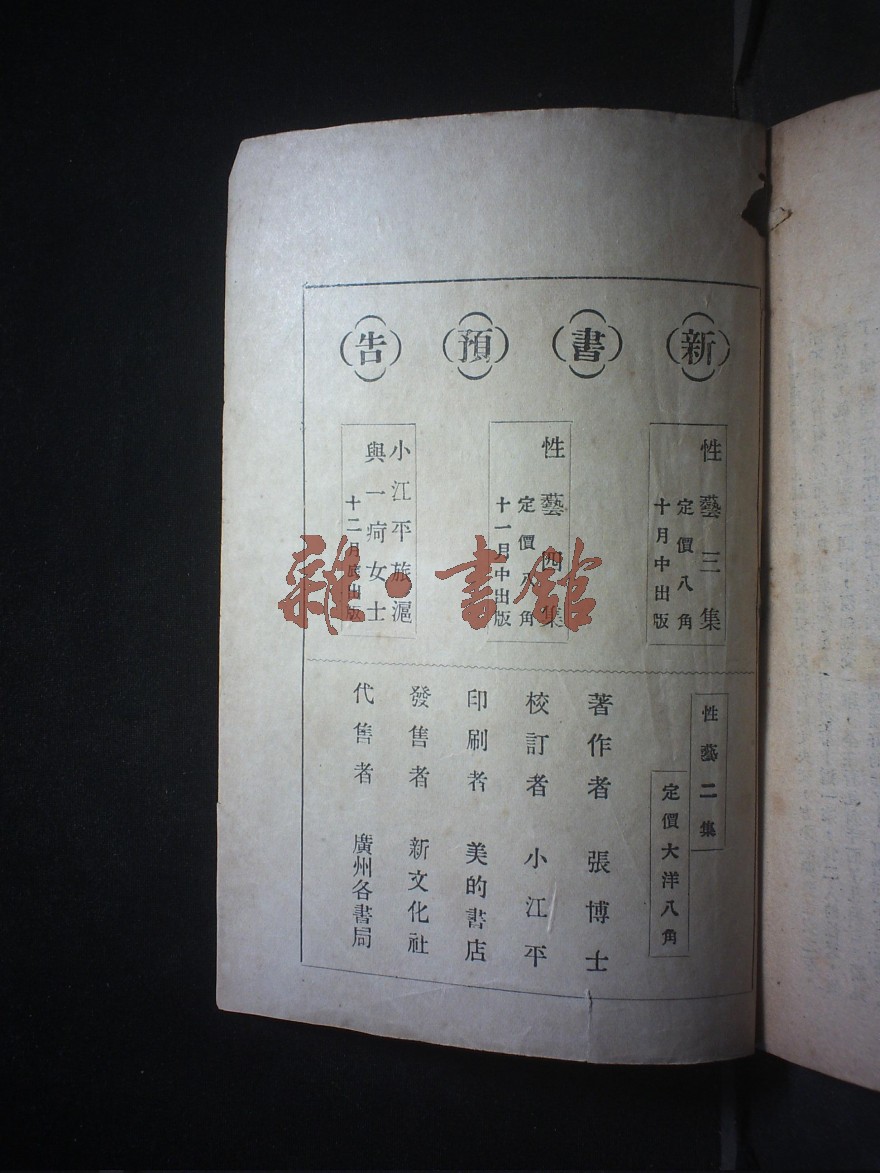 新書預告
性藝三集
定價八角
十月中出版
性藝四集
定價八角
十一月中出版
小江平旅滬
與一疴女士
十二月底出版
性藝二集
定價大洋八角
著作者 張博士
校訂者 小江平
印刷者 美的書店
發售者 新文化社
代售者 廣州各書局
雜·書館